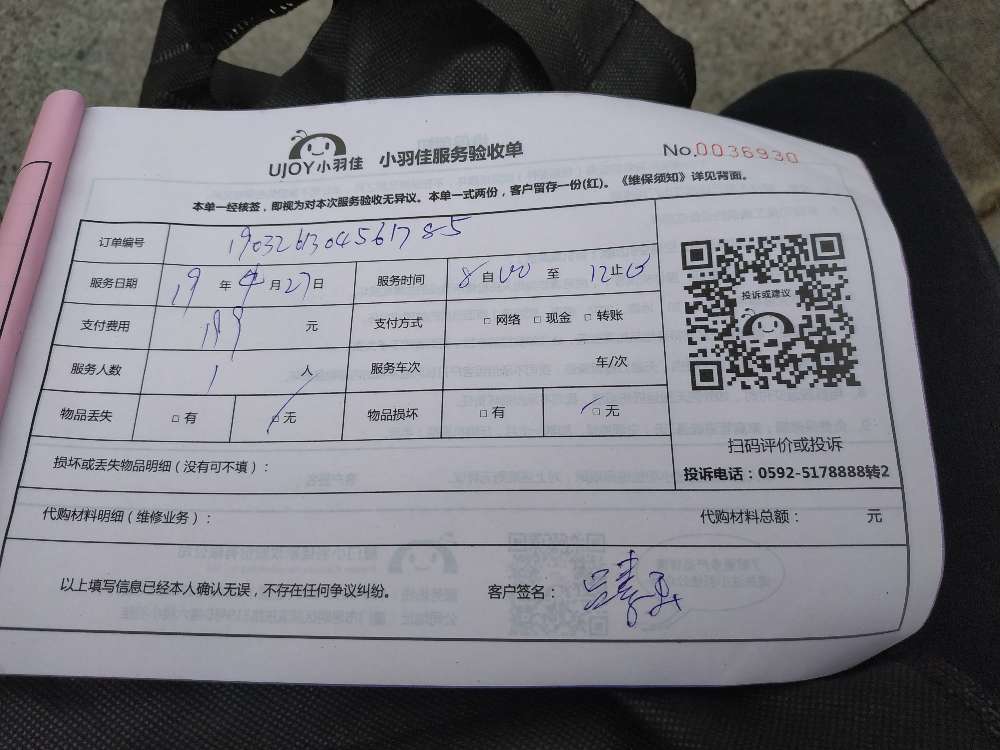 UJOY小羽佳 小羽佳服务验收单 No.0036930
本单一经核签，即视为对本次服务验收无异议。本单一式两份，客户留存一份(红)。《维保须知》详见背面。
订单编号 1903261304561785
服务日期 19 年 4 月 27 日 服务时间 8 自 00 至 12 止 00
支付费用 199 元 支付方式 □ 网络 □ 现金 □ 转账
服务人数 1 人 服务车次 车/次
物品丢失 □ 有 □ 无 物品损坏 □ 有 □ 无
损坏或丢失物品明细（没有可不填）：
投诉或建议
扫码评价或投诉
投诉电话：0592-5178888转2
代购材料明细（维修业务）： 代购材料总额： 元
以上填写信息已经本人确认无误，不存在任何争议纠纷。 客户签名：